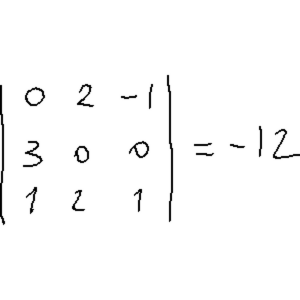 | 0 2 -1 |
| 3 0 0 | = -12
| 1 2 1 |